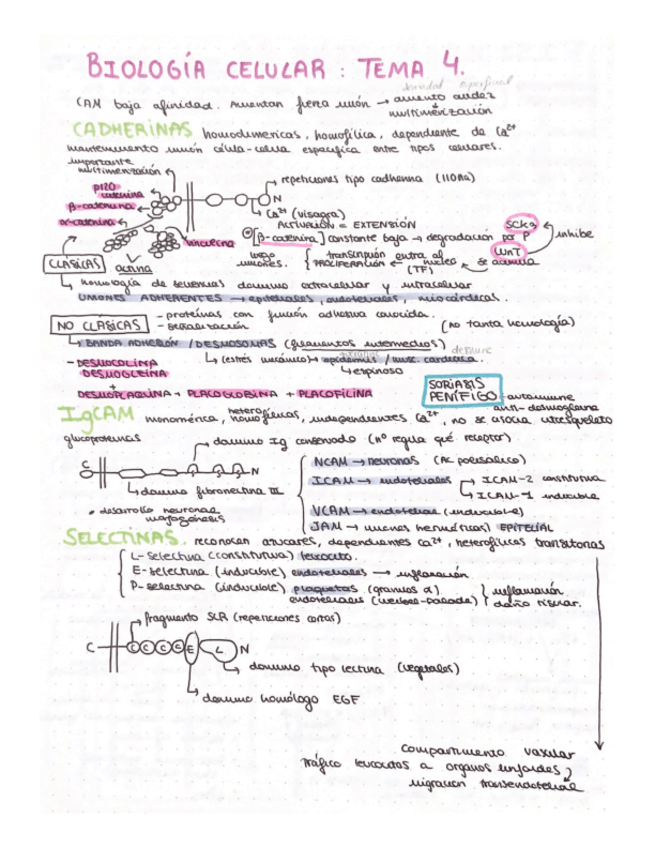 BIOLOGÍA CELULAR : TEMA 4.
densidad superficial
CAM baja afinidad. Aumentan fuerza unión → aumento avidez
multimerización
CADHERINAS homodiméricas, homofílica, dependiente de Ca2+
mantenimiento unión célula-célula específica entre tipos celulares.
importante
multimerización
repeticiones tipo cadherina (110Aa)
p120
catenina
N
β-catenina
Ca2+ (visagra)
ACTIVACIÓN = EXTENSIÓN
α-catenina
[β-catenina] constante baja → degradación por P
SCKs
inhibe
vinculina
luego
uniones.
transcripción entra al
PROLIFERACIÓN ← núcleo ← se acumula
(TF)
WNT
CLÁSICAS
actina
homología de secuencias dominio extracelular y intracelular
UNIONES ADHERENTES → epiteliales, endoteliales, miocárdicas.
NO CLÁSICAS
- proteínas con función adhesiva conocida.
- señalización
(no tanta homología)
BANDA ADHESIÓN / DESMOSOMAS (filamentos intermedios)
- DESMOCOLINA
DESMOGLEINA
(estrés mecánico) → epidermis / musc. cardíaca.
espinoso
+
DESMOPLAQUINA + PLACOGLOBINA + PLACOFILINA
SORIASIS
PENÍFIGO
autoinmune
anti-desmogleina
IgCAM monomérica, homofílicas, independientes Ca2+, no se asocia citoesqueleto
heterof
glucoproteínas
dominio Ig conservado (nº regula qué receptor)
C
N
dominio fibronectina III
• desarrollo neuronal
morfogénesis
NCAM → neuronas (Ac polisiálico)
ICAM → endoteliales
ICAM-2 constitutiva
ICAM-1 inducible
VCAM → endotelial (inducible)
JAM → uniones herméticas) EPITELIAL
SELECTINAS. reconocen azúcares, dependientes Ca2+, heterofílicas transitorias
L-Selectina (constitutiva) leucocito.
E-selectina (inducible) endoteliales → inflamación
P-selectina (inducible) plaquetas (gránulos α)
endoteliales (Weibel-Palade)
inflamación
daño tisular.
fragmento SCR (repeticiones cortas)
C
C C C C E L N
dominio tipo lectina (vegetales)
dominio homólogo EGF
compartimento vascular
tráfico leucocitos a órganos linfoides,
migración transendotelial